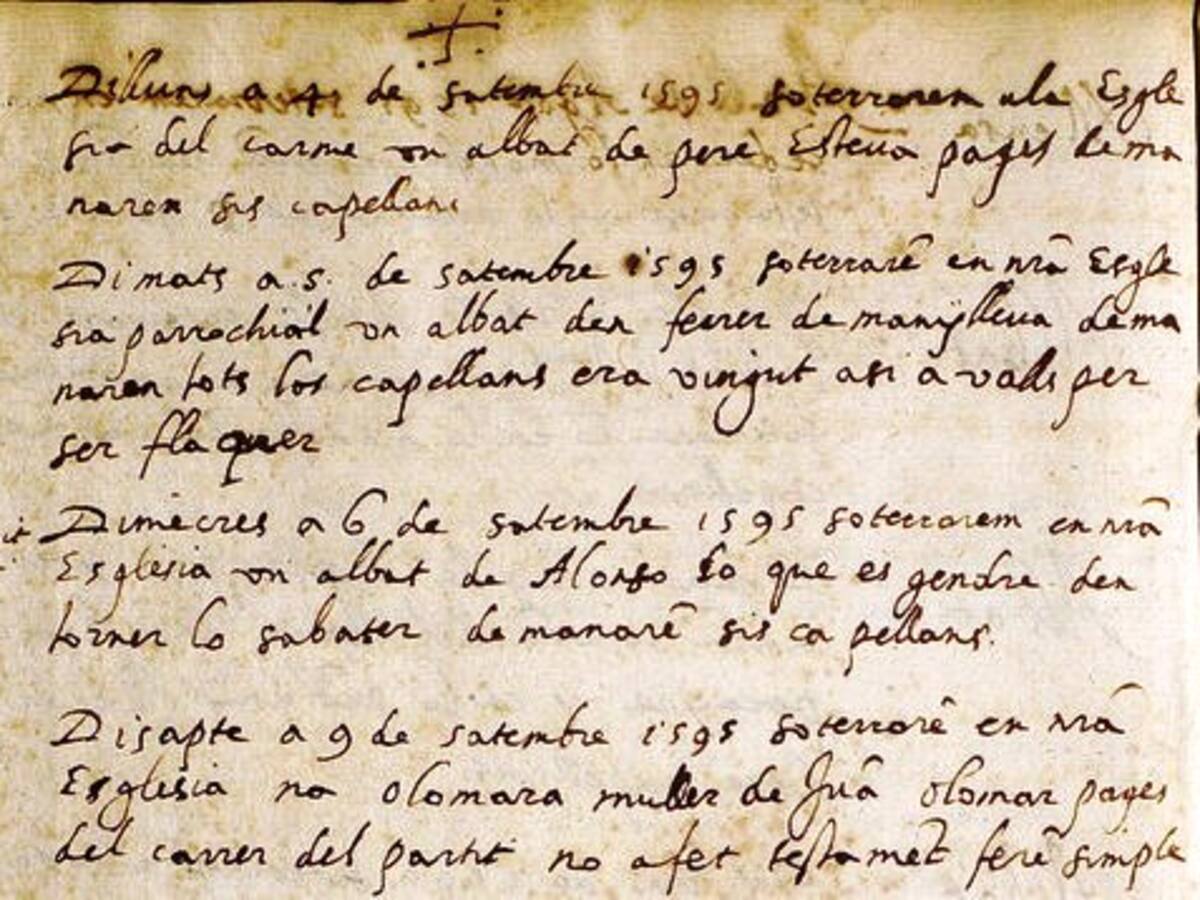 Dilluns a 4 de satembre 1595 soterrarem ala Esgle
sia del carme vn albat de pere Esteua pages dema
naren sis capellans
Dimats a 5. de satembre 1595 soterrarē en nrā Esgle
sia parrochial vn albat den ferrer de manÿlleua dema
naren tots los capellans era vingut asi a valls per
ser flaquer
Dimecres a 6 de satembre 1595 soterrarem en nrā
Esglesia vn albat de Alonso lo que es gendre den
torner lo sabater demanarē sis capellans.
Disapte a 9 de satembre 1595 soterrarē en nrā
Esglesia na olomara muller de Juā olomar pages
del carrer del partit no a fet testamēt ferē simple